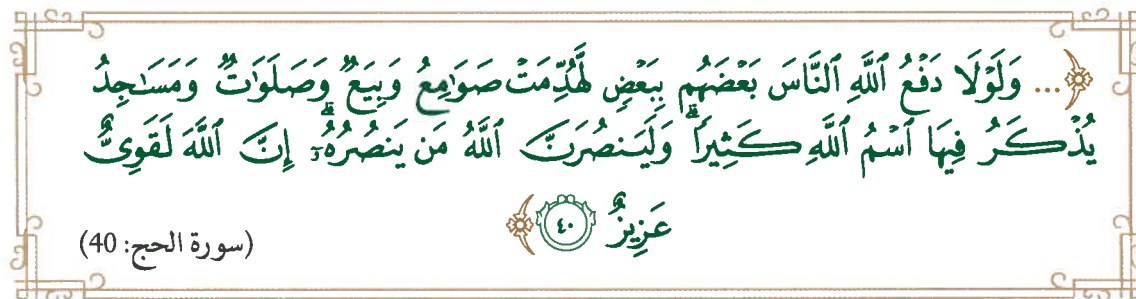 ﴿... وَلَوْلَا دَفْعُ ٱللَّهِ ٱلنَّاسَ بَعْضَهُم بِبَعْضٍ لَّهُدِّمَتْ صَوَٰمِعُ وَبِيَعٌ وَصَلَوَٰتٌ وَمَسَـٰجِدُ
يُذْكَرُ فِيهَا ٱسْمُ ٱللَّهِ كَثِيرًا ۗ وَلَيَنصُرَنَّ ٱللَّهُ مَن يَنصُرُهُۥٓ ۗ إِنَّ ٱللَّهَ لَقَوِىٌّ
عَزِيزٌ ٤٠﴾
(سورة الحج: 40)